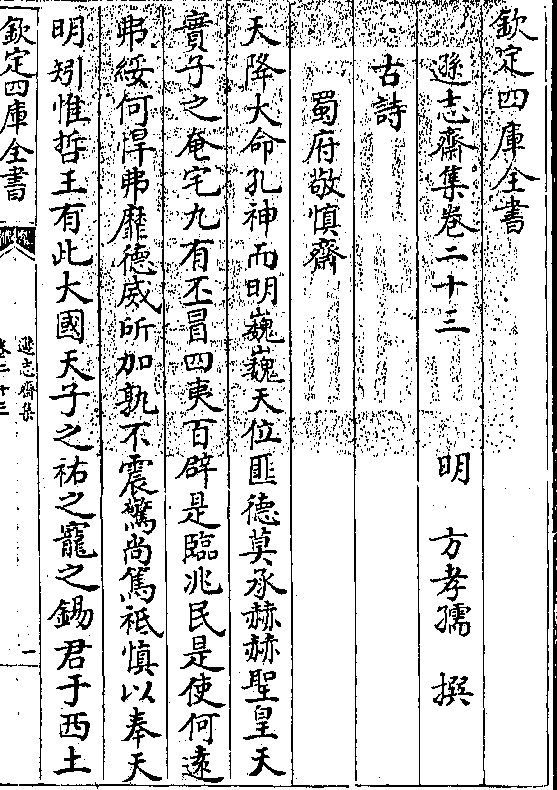 欽定四庫全書
遜志齋集卷二十三
明 方孝孺 撰
古詩
蜀府敬慎齋
天降大命孔神而明巍巍天位匪德莫承赫赫聖皇天
實子之奄宅九有丕冒四夷百辟是臨兆民是使何遠
弗綏何悍弗靡德威所加孰不震驚尚篤祗慎以奉天
明矧惟哲王有此大國天子之祐之寵之錫君于西土
欽定四庫全書
遜志齋集
卷二十三
一